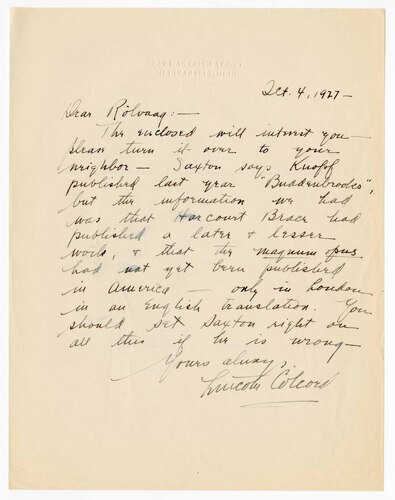 ALDRICH AVE. S.
MINNEAPOLIS, MINN.
Oct. 4, 1927 —
Dear Rölvaag: —
The enclosed will interest you —
please turn it over to your
neighbor — Saxton says Knopf
published last year "Buddenbrooks",
but the information we had
was that Harcourt Brace had
published a later & lesser
work, & that the magnum opus
had not yet been published
in America — only in London
in an English translation. You
should set Saxton right on
all this if he is wrong —
Yours always,
Lincoln Colcord